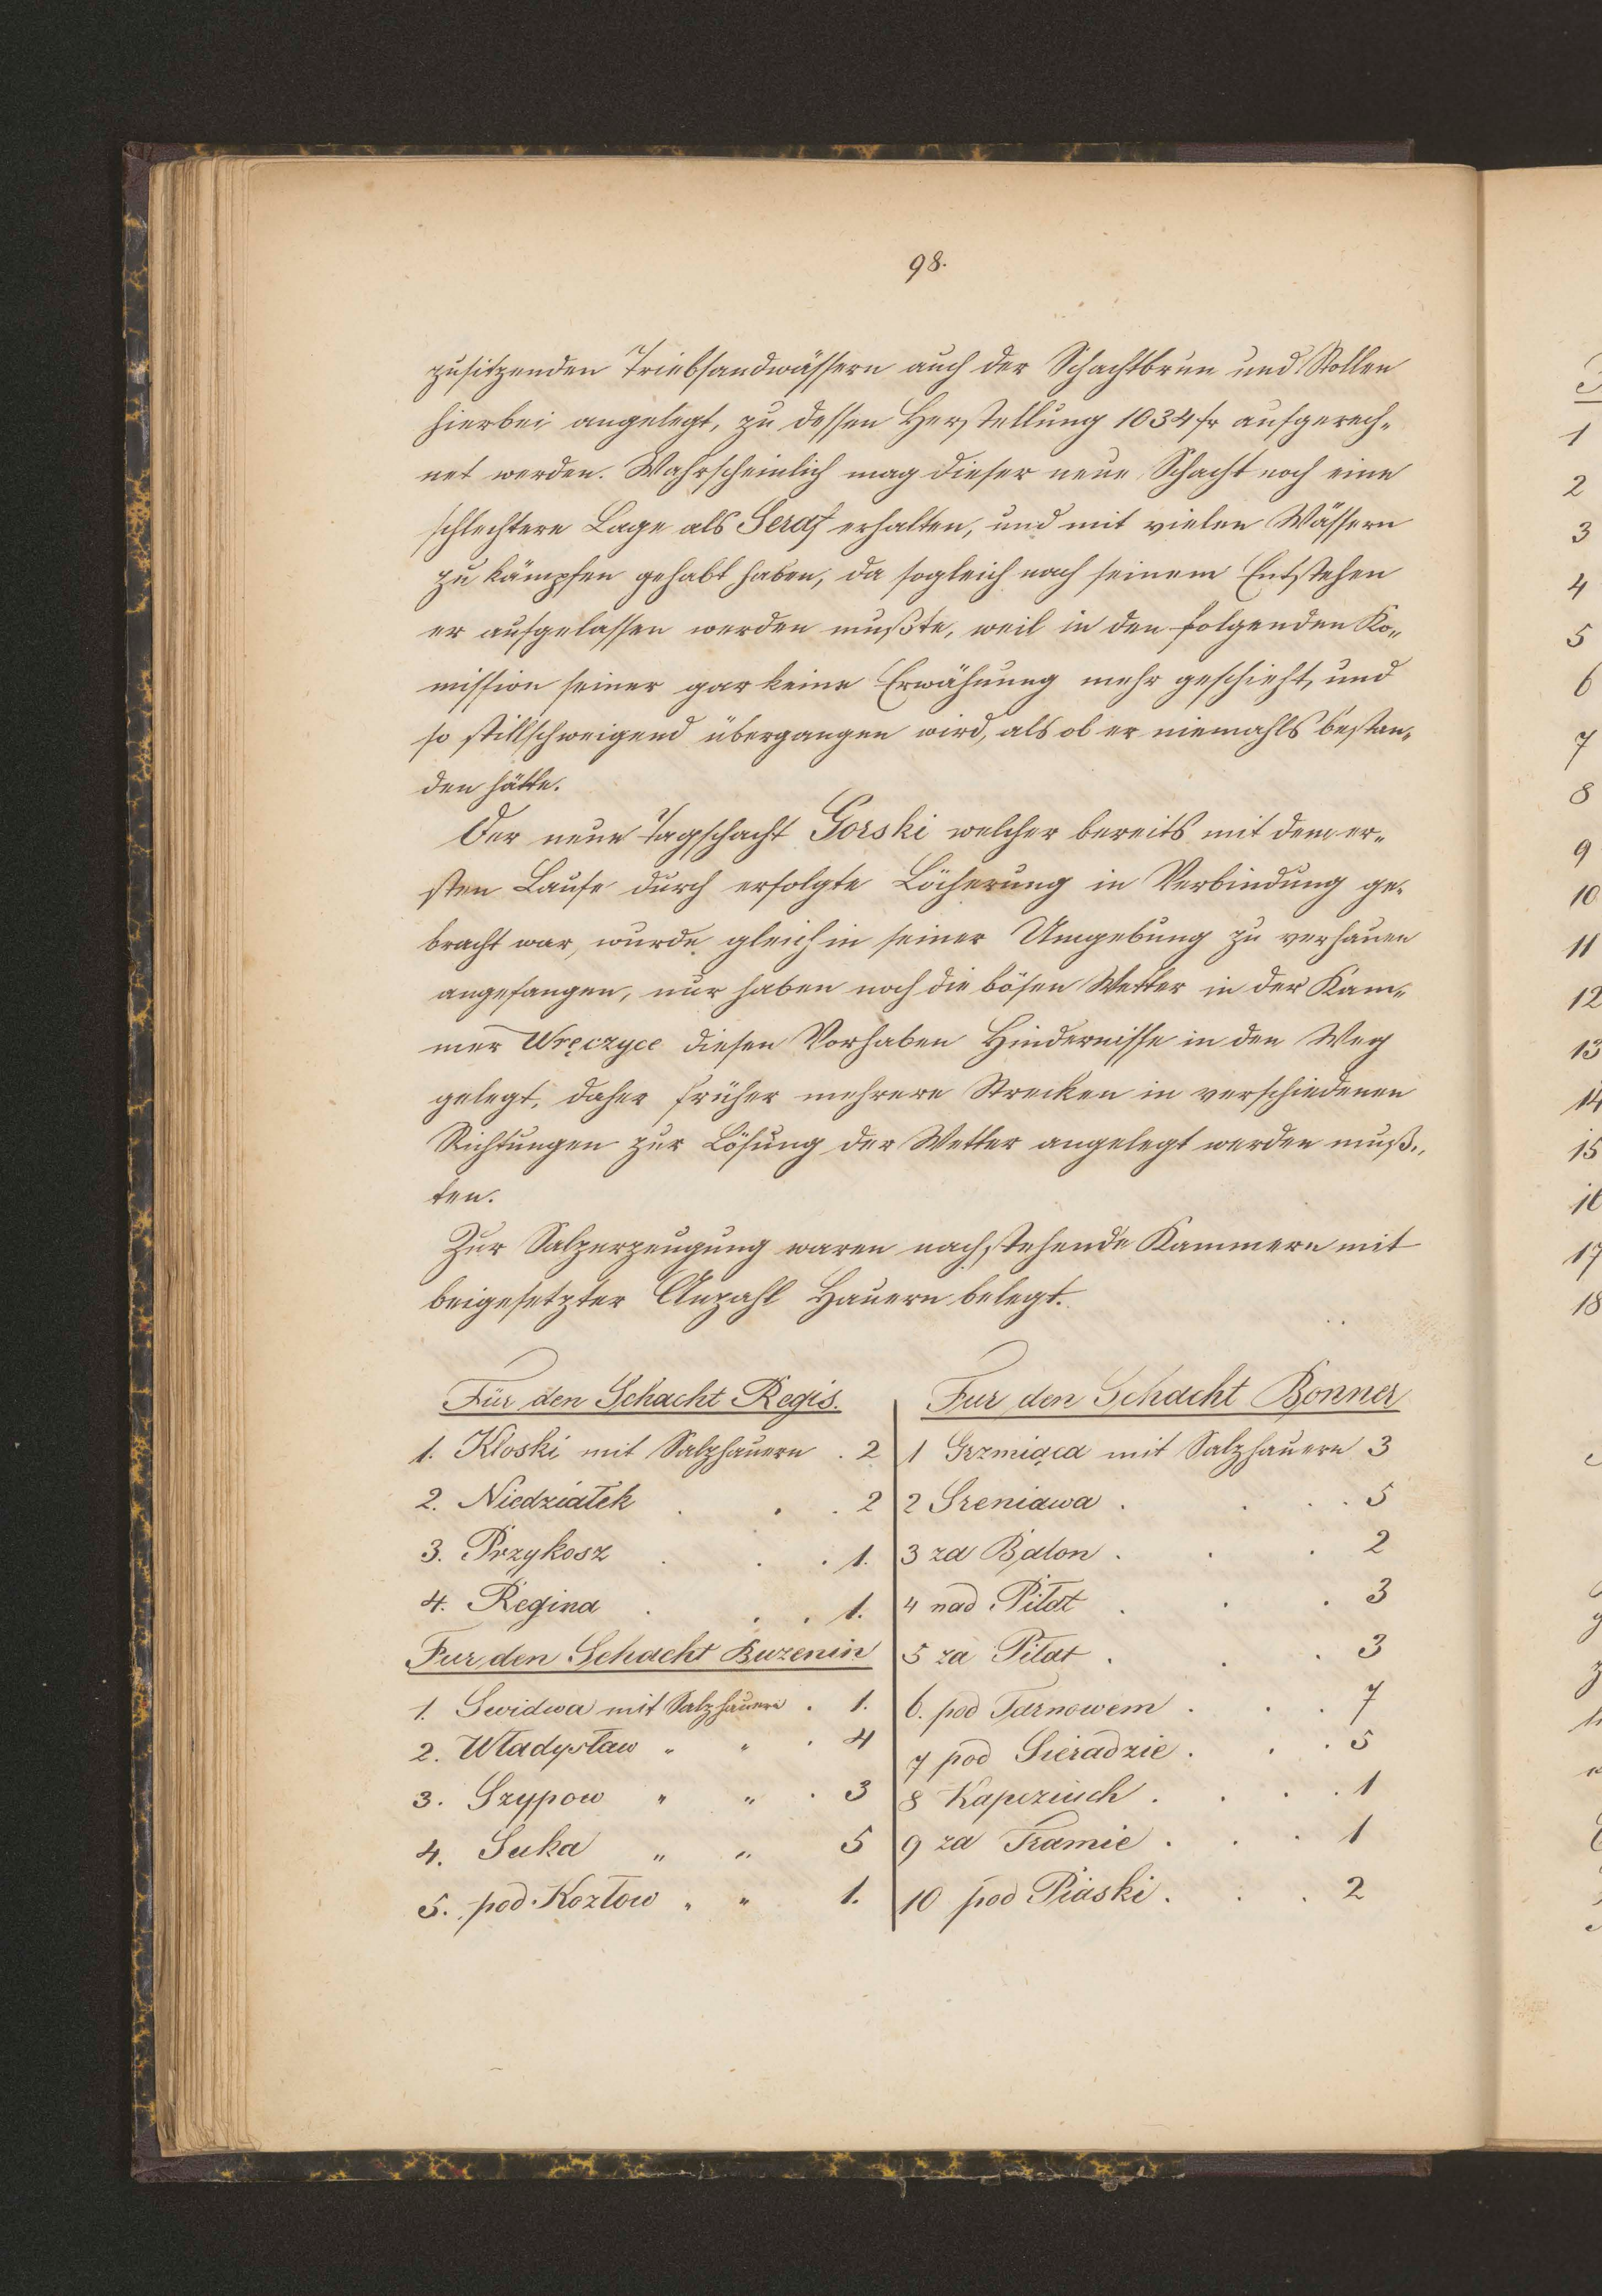 98.
zusitzenden Triebsandwässern auch der Schachtbrun und Stollen
hierbei angelegt, zu dessen Herstellung 1034 fr aufgerech-
net werden. Wahrscheinlich mag dieser neue Schacht noch eine
schlechtere Lage als Seraf erhalten, und mit vielen Wässern
zu kämpfen gehabt haben, da sogleich nach seinem Entstehen
er aufgelassen werden mußte, weil in den folgenden Ko-
mission seiner gar keine Erwähnung mehr geschieht, und
so stillschweigend übergangen wird, als ob er niemahls bestan-
den hätte.
Der neue Tagschacht Gorski welcher bereits mit dem er-
sten Laufe durch erfolgte Löcherung in Verbindung ge-
bracht war, wurde gleich in seiner Umgebung zu verhauen
angefangen, nur haben noch die bösen Wetter in der Kam-
mer Wręczyce diesen Vorhaben Hindernisse in den Weg
gelegt, daher früher mehrere Strecken in verschiedenen
Richtungen zur Lösung der Wetter angelegt werden muß-
ten.
Zur Salzerzeugung waren nachstehende Kammern mit
beigesetzter Anzahl Hauern belegt.
Für den Schacht Regis.
1. Kloski mit Salzhauern . 2
2. Niedziałek . . . 2
3. Przykosz . . . 1.
4. Regina . . . 1.
Fur den Schacht Buzenin
1. Swidwa mit Salzhauern . 1.
2. Władysław " " . 4
3. Szypow " " . 3
4. Suka " " 5
5. pod Kozłow " " 1.
Fur den Schacht Bonner
1 Grzmiąca mit Salzhauern 3
2 Sreniawa . . . . 5
3 za Balon . . . 2
4 nad Piłat . . . 3
5 za Piłat . . . 3
6. pod Tarnowem . . . 7
7 pod Sieradzie . . . 5
8 Kapeziuch . . . . 1
9 za Tramie . . . 1
10 pod Piaski . . . 2
1
2
3
4
5
6
7
8
9
10
11
12
13
14
15
16
17
18